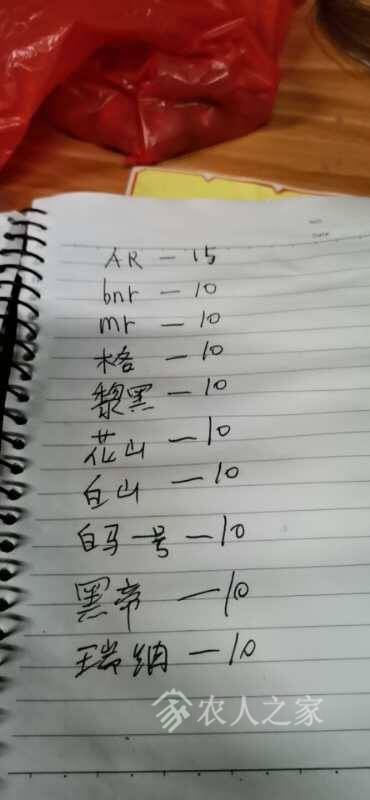 No
Date
AR — 15
bnr — 10
mr — 10
木各 — 10
黎黑 — 10
花山 — 10
白山 — 10
白马一号 — 10
黑帝 — 10
瑞纳 — 10
农人之家